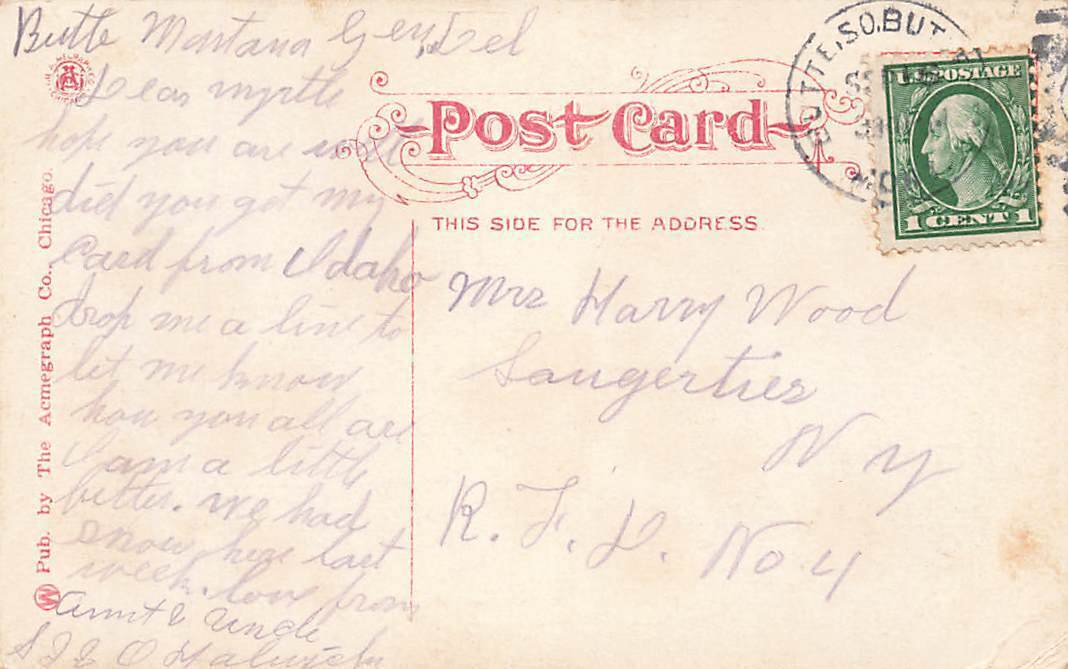 Butte Montana Gen Del
Dear myrtle
hope you are well
did you get my
card from Idaho
drop me a line to
let me know
how you all are
I am a little
better. we had
snow here last
week. love from
Aunt & Uncle
Pub. by The Acmegraph Co., Chicago.
Post Card
THIS SIDE FOR THE ADDRESS.
BUTTE, SO. BUT
U.S. POSTAGE
1 CENT 1
Mrs Harry Wood
Saugerties
N y
R. F. D. No 4